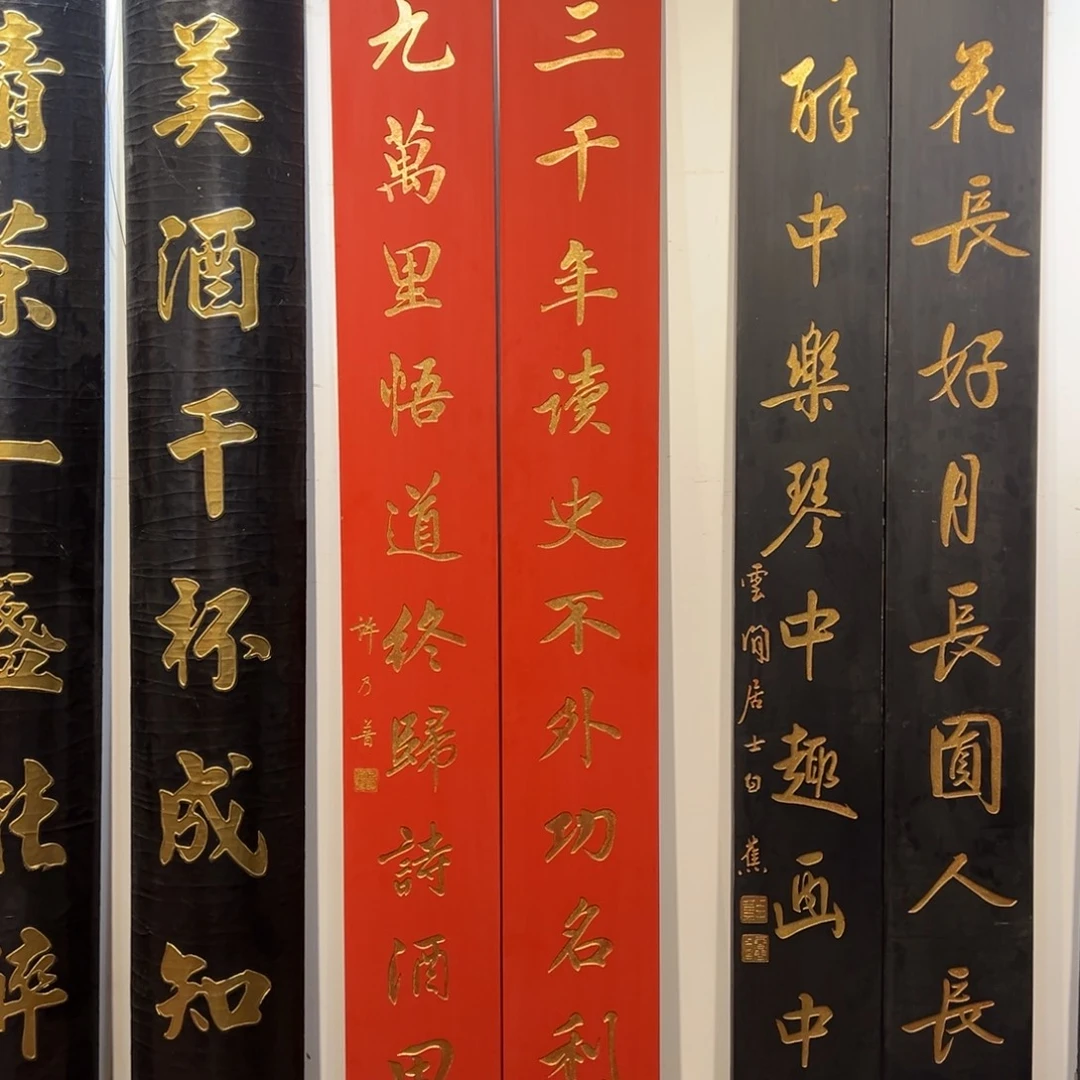 花長好月長圓人長
醉中樂琴中趣画中
雲間居士白蕉
三千年读史不外功名利
九萬里悟道終歸詩酒田
許乃普
美酒千杯成知
清茶一盞能醉